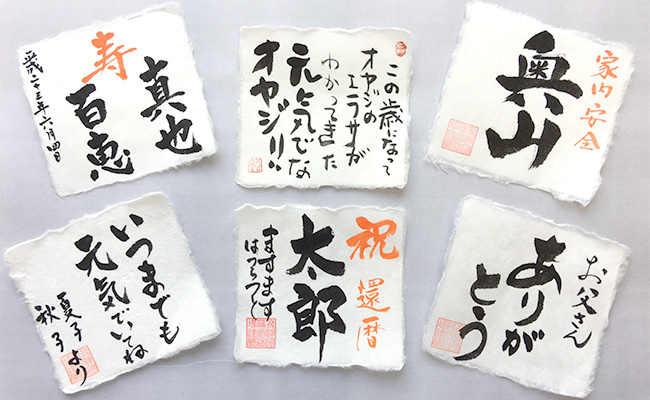 真也
寿 百恵
二十三年六月四日
この歳になって
オヤジの
エラサが
わかってきた
元気でな
オヤジ!!
家内安全
奥山
いつまでも
元気でいてね
夏子
秋子より
祝 還暦
太郎
ますます
はつらつと
お父さん
ありが
とう